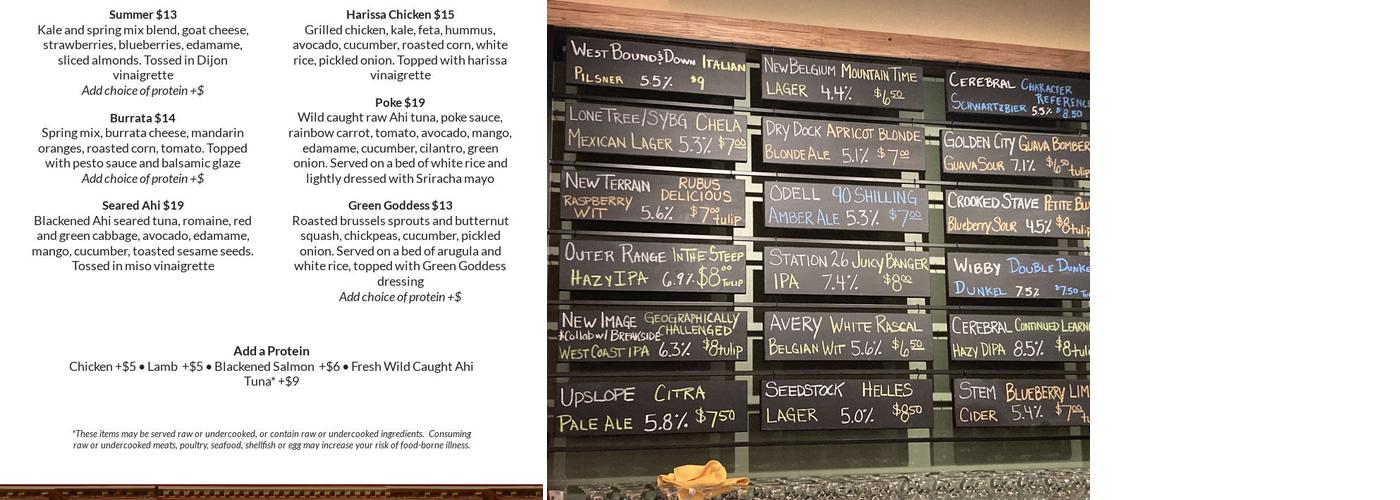 Summer $13
Kale and spring mix blend, goat cheese,
strawberries, blueberries, edamame,
sliced almonds. Tossed in Dijon
vinaigrette
Add choice of protein +$
Burrata $14
Spring mix, burrata cheese, mandarin
oranges, roasted corn, tomato. Topped
with pesto sauce and balsamic glaze
Add choice of protein +$
Seared Ahi $19
Blackened Ahi seared tuna, romaine, red
and green cabbage, avocado, edamame,
mango, cucumber, toasted sesame seeds.
Tossed in miso vinaigrette
Harissa Chicken $15
Grilled chicken, kale, feta, hummus,
avocado, cucumber, roasted corn, white
rice, pickled onion. Topped with harissa
vinaigrette
Poke $19
Wild caught raw Ahi tuna, poke sauce,
rainbow carrot, tomato, avocado, mango,
edamame, cucumber, cilantro, green
onion. Served on a bed of white rice and
lightly dressed with Sriracha mayo
Green Goddess $13
Roasted brussels sprouts and butternut
squash, chickpeas, cucumber, pickled
onion. Served on a bed of arugula and
white rice, topped with Green Goddess
dressing
Add choice of protein +$
Add a Protein
Chicken +$5 • Lamb +$5 • Blackened Salmon +$6 • Fresh Wild Caught Ahi
Tuna* +$9
*These items may be served raw or undercooked, or contain raw or undercooked ingredients. Consuming
raw or undercooked meats, poultry, seafood, shellfish or egg may increase your risk of food-borne illness.
WEST BOUND & DOWN ITALIAN
PILSNER 5.5% $9
LONETREE/SYBG CHELA
MEXICAN LAGER 5.3% $700
NEW TERRAIN RUBUS
DELICIOUS
RASPBERRY
WIT 5.6% $700 tulip
OUTER RANGE IN THE STEEP
HAZY IPA 6.9% $800 TULIP
NEW IMAGE GEOGRAPHICALLY
CHALLENGED
*Collab w/ BREAKSIDE
WEST COAST IPA 6.3% $8 tulip
UPSLOPE CITRA
PALE ALE 5.8% $750
NEW BELGIUM MOUNTAIN TIME
LAGER 4.4% $650
DRY DOCK APRICOT BLONDE
BLONDE ALE 5.1% $700
ODELL 90 SHILLING
AMBER ALE 5.3% $700
STATION 26 JUICY BANGER
IPA 7.4% $800
AVERY WHITE RASCAL
BELGIAN WIT 5.6% $650
SEEDSTOCK HELLES
LAGER 5.0% $850
CEREBRAL CHARACTER
REFERENCE
SCHWARTZBIER 5.5% $8.50
GOLDEN CITY GUAVA BOMBER
GUAVA SOUR 7.1% $650 tulip
CROOKED STAVE PETITE
Blueberry SOUR 4.5% $8 tulip
WIBBY DOUBLE
DUNKEL 7.5% $7.50
CEREBRAL CONTINUED
HAZY DIPA 8.5% $8
STEM BLUEBERRY
CIDER 5.4% $700